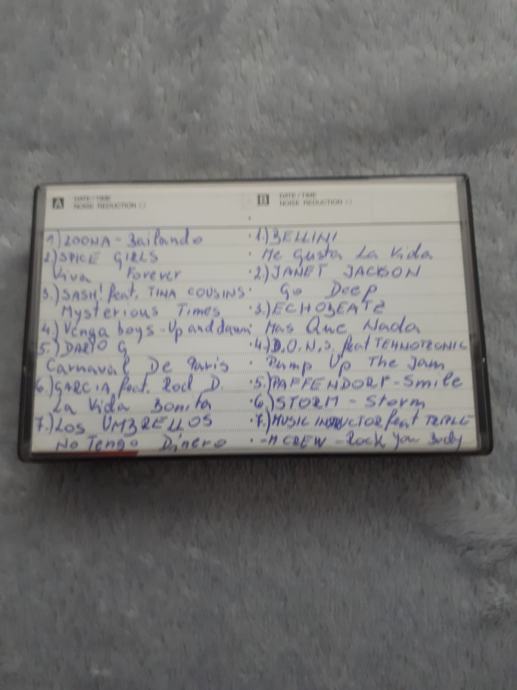 A DATE/TIME
NOISE REDUCTION
1.) LOONA - Bailando
2.) SPICE GIRLS
Viva Forever
3.) SASH! feat. TINA COUSINS
Mysterious Times
4.) Venga boys - Up and down
5.) DARIO G
Carnaval De Paris
6.) GARCIA feat. Rod D.
La Vida Bonita
7.) LOS UMBRELLOS
No Tengo Dinero
B DATE/TIME
NOISE REDUCTION
1.) BELLINI
Me Gusta La Vida
2.) JANET JACKSON
Go Deep
3.) ECHOBEATZ
Mas Que Nada
4.) D.O.N.S. feat TEHNOTRONIC
Pump Up The Jam
5.) PAFFENDORF - Smile
6.) STORM - Storm
7.) MUSIC INSTRUCTOR feat TRIPLE
-M CREW - Rock You Body